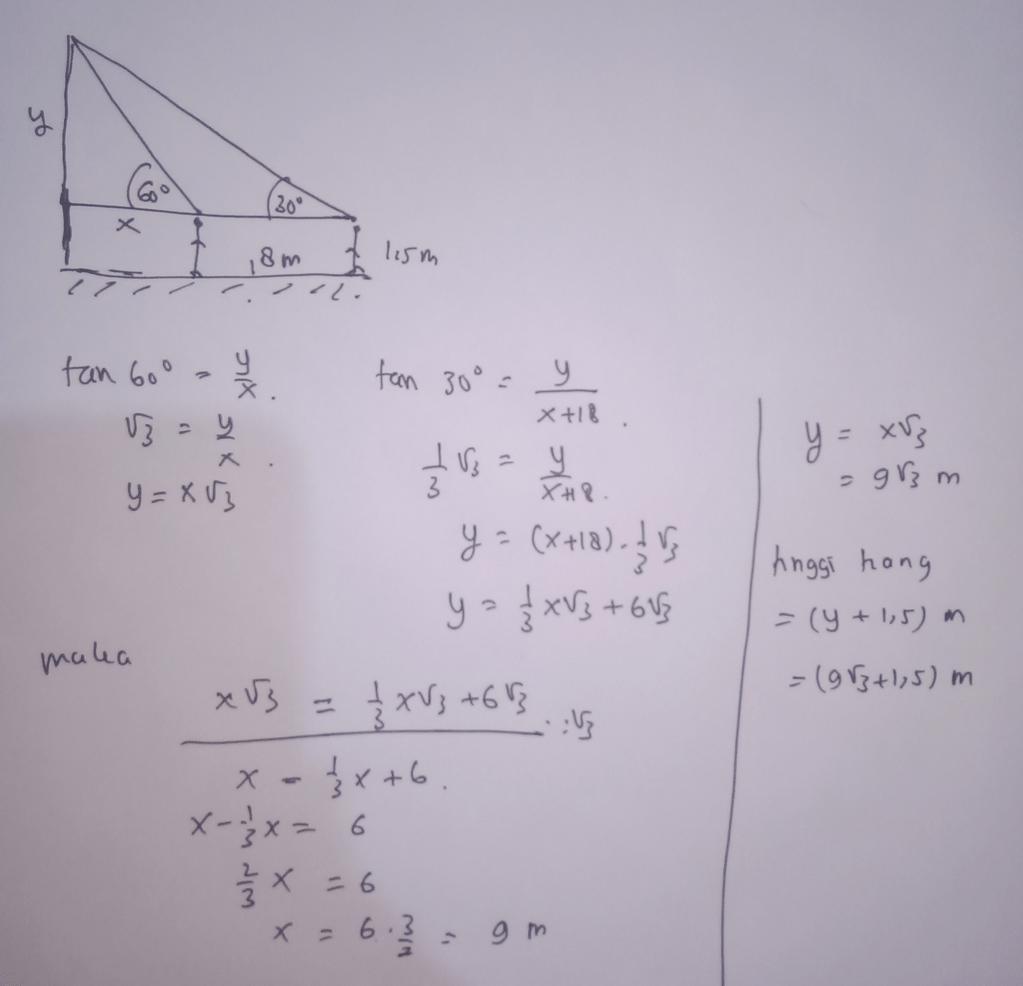 y
60°
30°
x
18 m
1,5 m
tan 60° = y/x.
√3 = y/x.
y = x√3
tan 30° = y/(x+18).
1/3 √3 = y/(x+18).
y = (x+18) . 1/3 √3
y = 1/3 x√3 + 6√3
maka
x√3 = 1/3 x√3 + 6√3
: √3
x = 1/3 x + 6.
x - 1/3 x = 6
2/3 x = 6
x = 6 . 3/2 = 9 m
y = x√3
= 9√3 m
tinggi tiang
= (y + 1,5) m
= (9√3 + 1,5) m